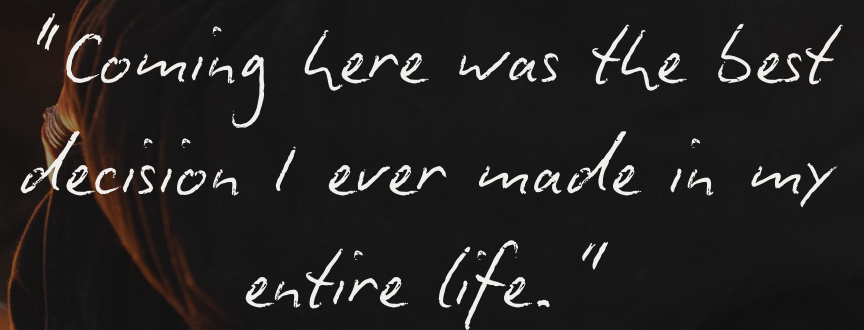 "Coming here was the best
decision I ever made in my
entire life."